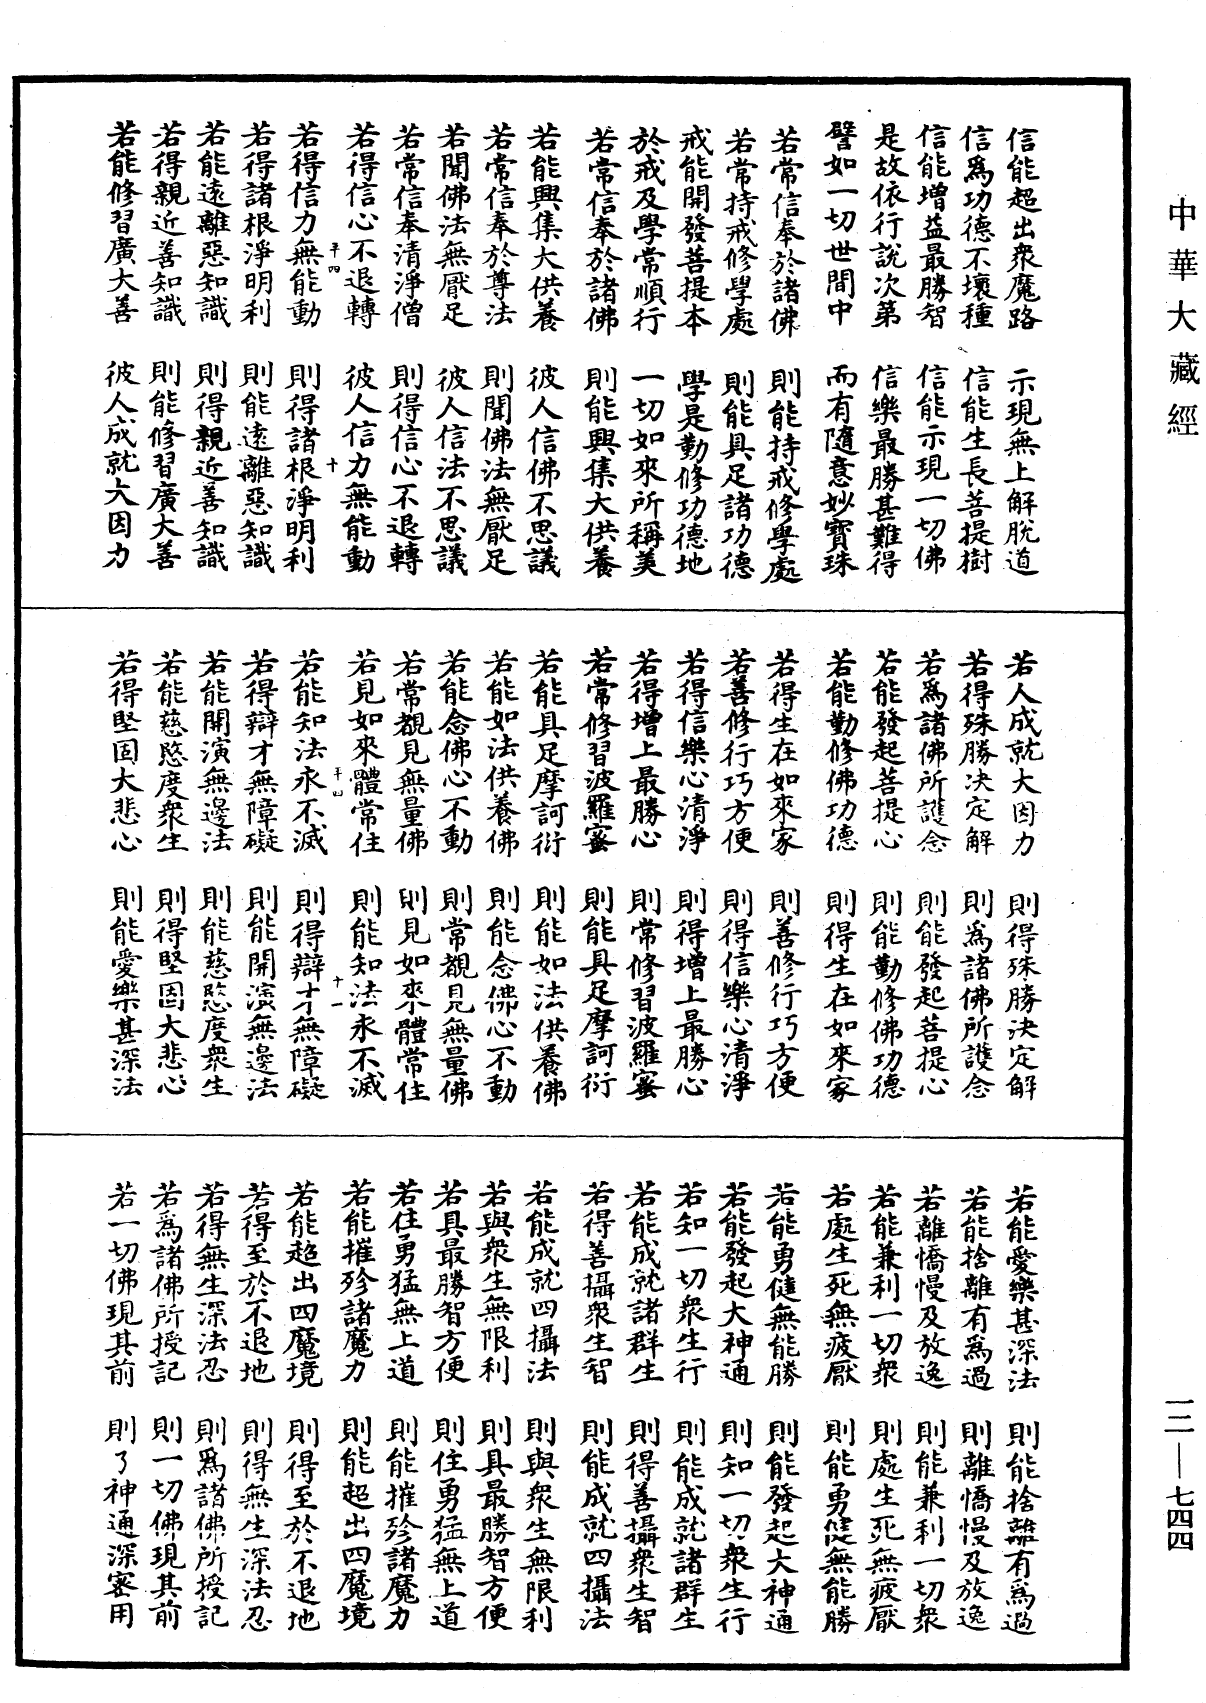 中華大藏經
信能超出衆魔路　示現無上解脫道
信爲功德不壞種　信能生長菩提樹
信能增益最勝智　信能示現一切佛
是故依行說次第　信樂最勝甚難得
譬如一切世間中　而有隨意妙寶珠
若常信奉於諸佛　則能持戒修學處
若常持戒修學處　則能具足諸功德
戒能開發菩提本　學是勤修功德地
於戒及學常順行　一切如來所稱美
若常信奉於諸佛　則能興集大供養
若能興集大供養　彼人信佛不思議
若常信奉於尊法　則聞佛法無厭足
若聞佛法無厭足　彼人信法不思議
若常信奉清淨僧　則得信心不退轉
若得信心不退轉　彼人信力無能動
平四　十
若得信力無能動　則得諸根淨明利
若得諸根淨明利　則能遠離惡知識
若能遠離惡知識　則得親近善知識
若得親近善知識　則能修習廣大善
若能修習廣大善　彼人成就大因力
若人成就大因力　則得殊勝決定解
若得殊勝決定解　則爲諸佛所護念
若爲諸佛所護念　則能發起菩提心
若能發起菩提心　則能勤修佛功德
若能勤修佛功德　則得生在如來家
若得生在如來家　則善修行巧方便
若善修行巧方便　則得信樂心清淨
若得信樂心清淨　則得增上最勝心
若得增上最勝心　則常修習波羅蜜
若常修習波羅蜜　則能具足摩訶衍
若能具足摩訶衍　則能如法供養佛
若能如法供養佛　則能念佛心不動
若能念佛心不動　則常覩見無量佛
若常覩見無量佛　則見如來體常住
若見如來體常住　則能知法永不滅
平四　十一
若能知法永不滅　則得辯才無障礙
若得辯才無障礙　則能開演無邊法
若能開演無邊法　則能慈愍度衆生
若能慈愍度衆生　則得堅固大悲心
若得堅固大悲心　則能愛樂甚深法
若能愛樂甚深法　則能捨離有爲過
若能捨離有爲過　則離憍慢及放逸
若離憍慢及放逸　則能兼利一切衆
若能兼利一切衆　則處生死無疲厭
若處生死無疲厭　則能勇健無能勝
若能勇健無能勝　則能發起大神通
若能發起大神通　則知一切衆生行
若知一切衆生行　則能成就諸群生
若能成就諸群生　則得善攝衆生智
若得善攝衆生智　則能成就四攝法
若能成就四攝法　則與衆生無限利
若與衆生無限利　則具最勝智方便
若具最勝智方便　則住勇猛無上道
若住勇猛無上道　則能摧殄諸魔力
若能摧殄諸魔力　則能超出四魔境
若能超出四魔境　則得至於不退地
若得至於不退地　則得無生深法忍
若得無生深法忍　則爲諸佛所授記
若爲諸佛所授記　則一切佛現其前
若一切佛現其前　則了神通深密用
一二—七四四